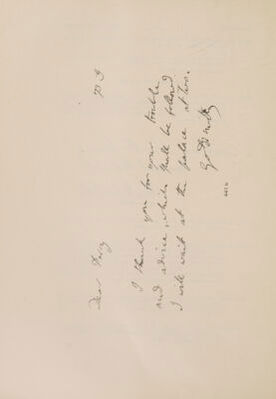 Dear Davy
I thank you for your trouble
and advice, which shall be followed
I will wait at the palace at two.